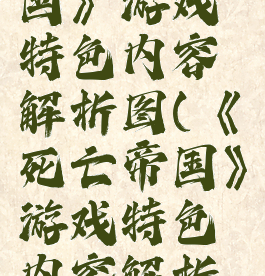 国》游戏
特色内容
解析图(《
死亡帝国》
游戏特色
内容解析